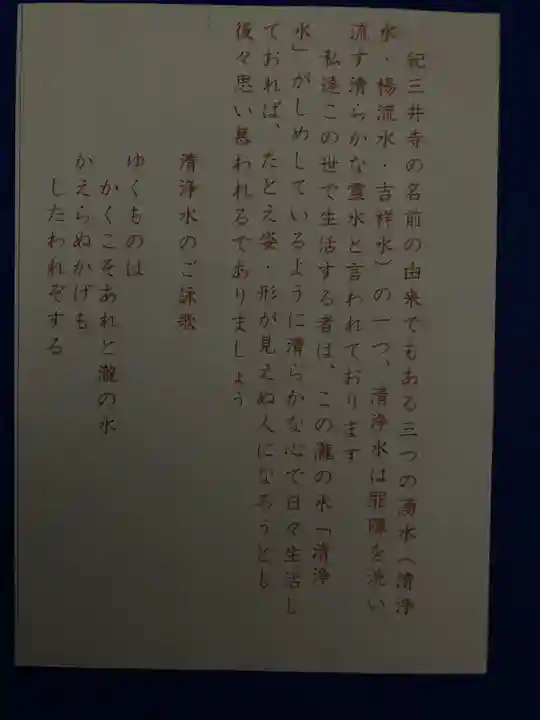 紀三井寺の名前の由来でもある三つの湧水（清浄
水・楊流水・吉祥水）の一つ、清浄水は罪障を洗い
流す清らかな霊水と言われております
私達この世で生活する者は、この瀧の水「清浄
水」がしめしているように清らかな心で日々生活し
ておれば、たとえ姿・形が見えぬ人になろうとし
後々思い慕われるでありましょう
清浄水のご詠歌
ゆくものは
かくこそあれと瀧の水
かえらぬかげも
したわれぞする